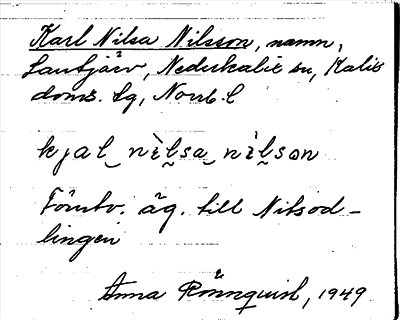 Karl Nilsa Nilsson, namn,
Lantjärv, Nederkalix sn, Kalix
doms. lg, Norrb. l
kjal nìlsa nìlson
Förutv. äg. till Nilsod-
lingen
Anna Rönnquist, 1949